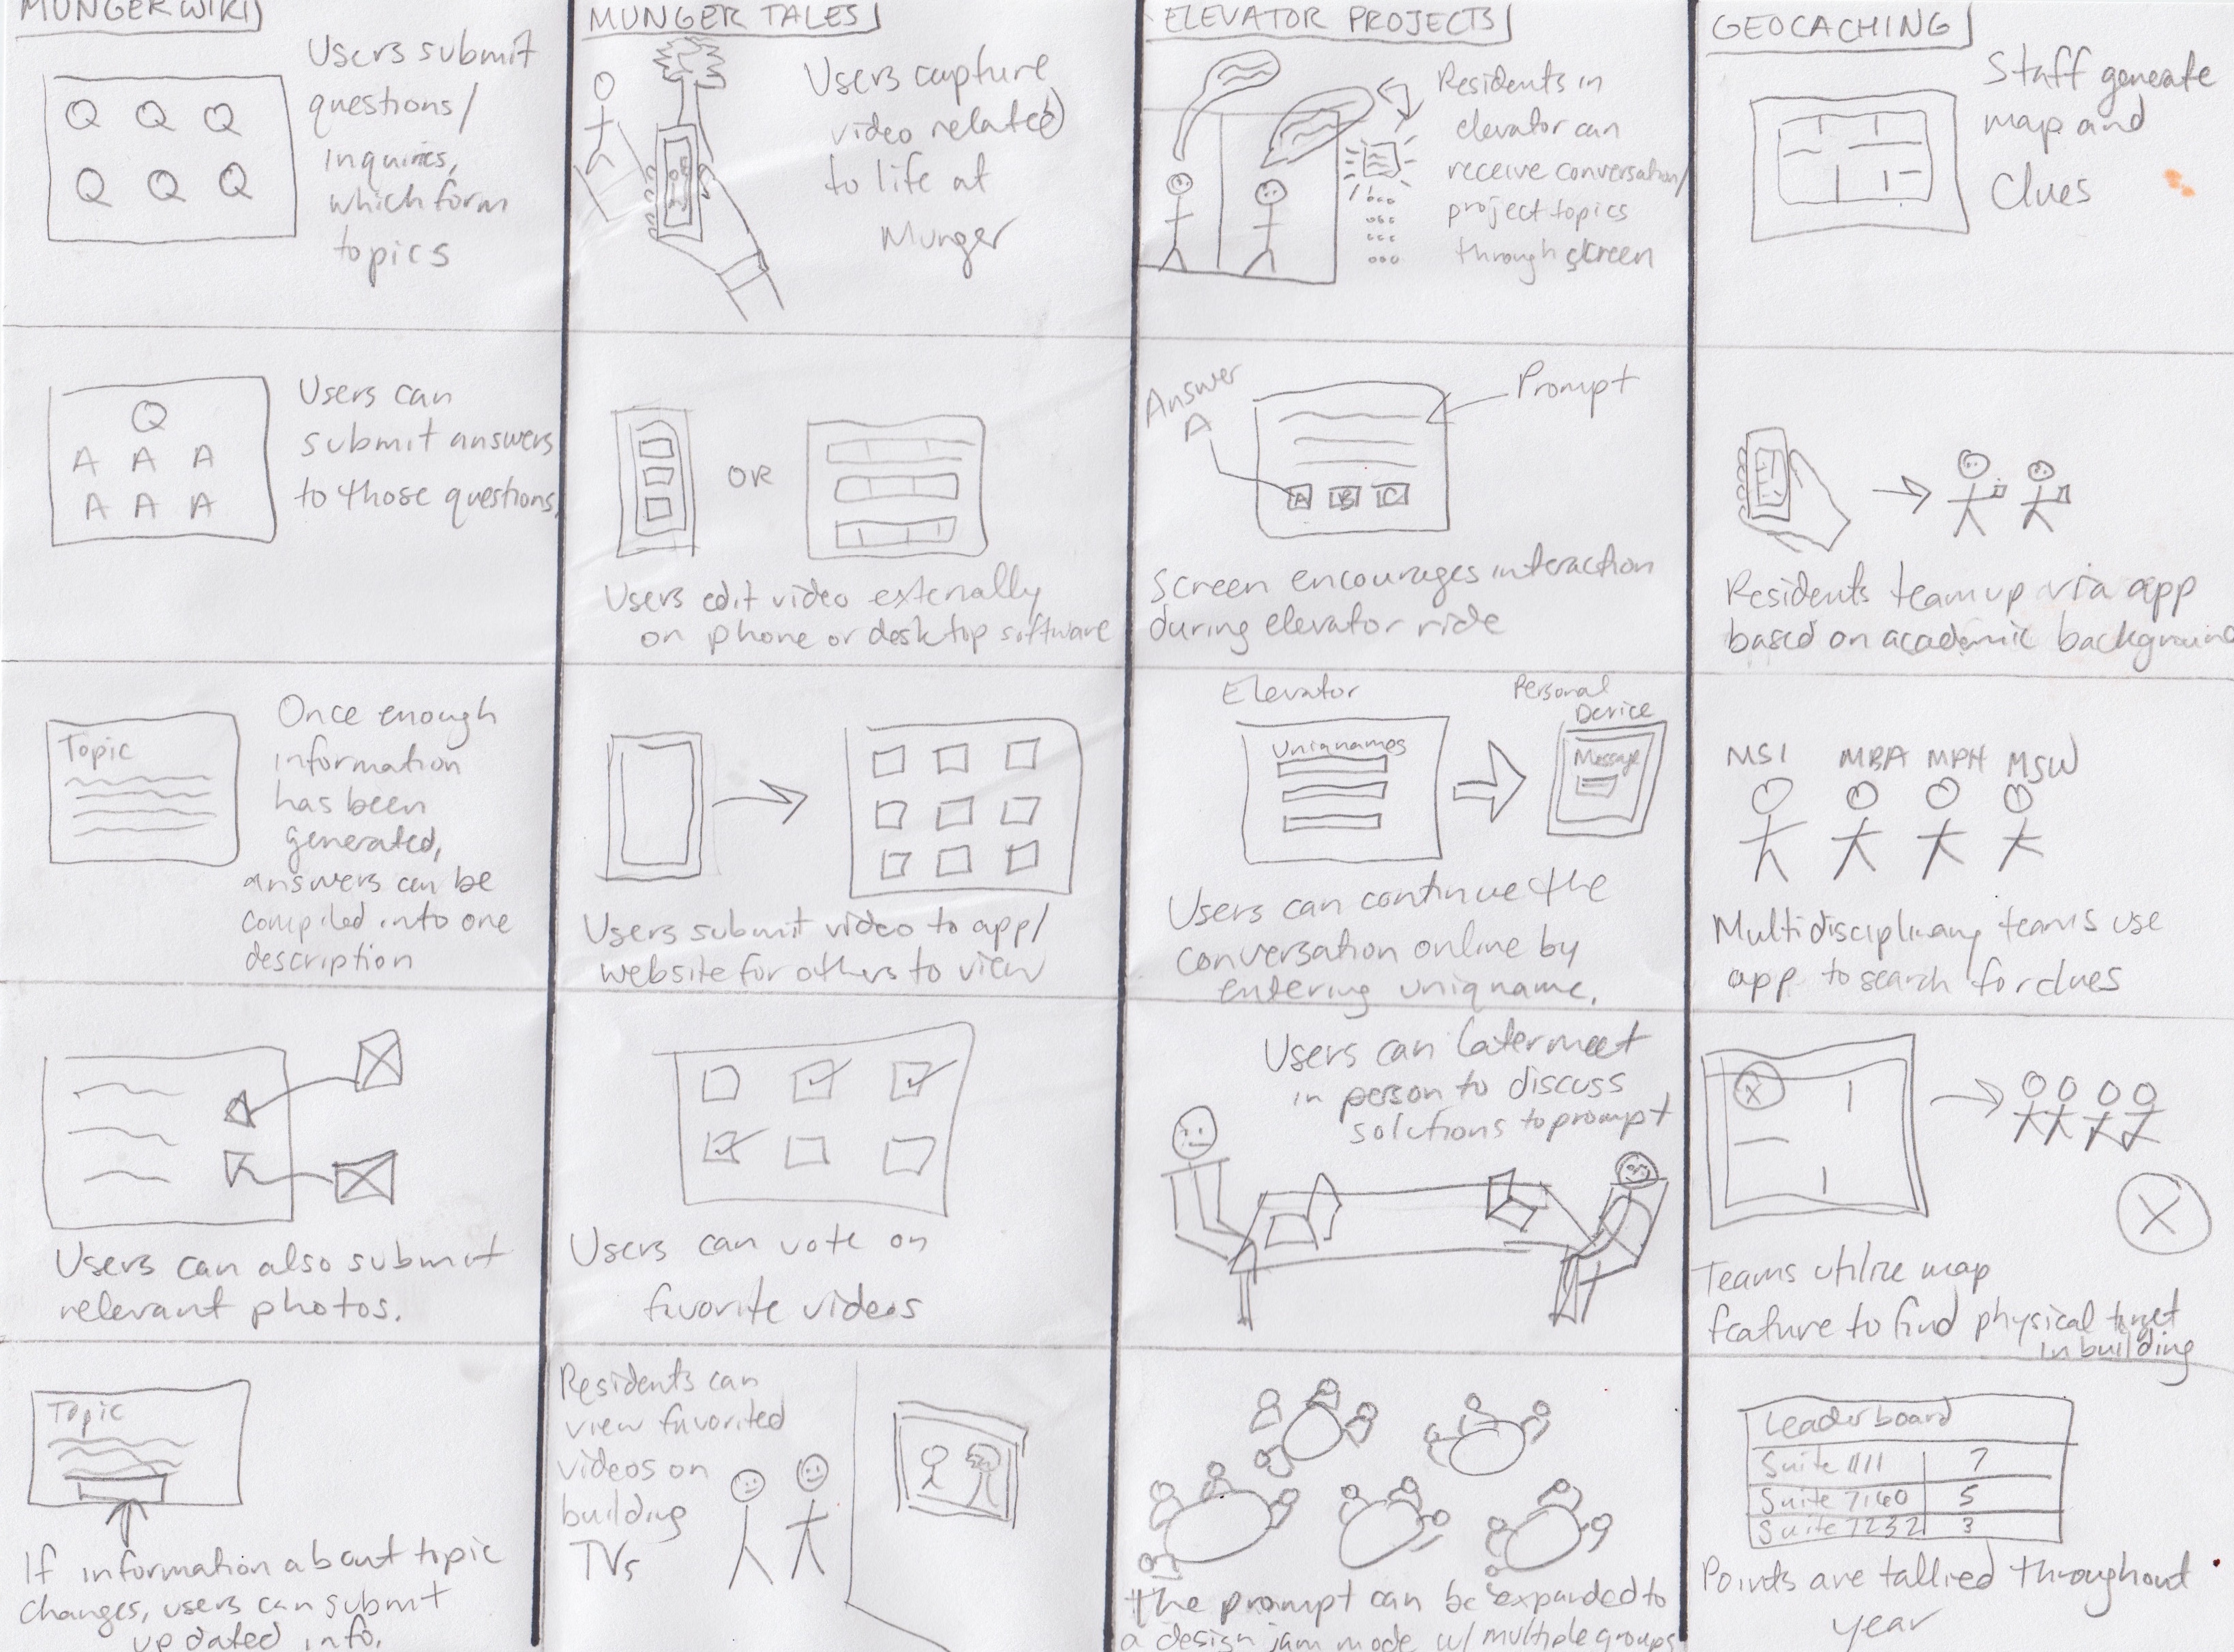 MUNGER WIKI
Users submit
questions/
inquiries,
which form
topics
Q Q Q
Q Q Q
Users can
submit answers
to those questions.
Q
A A A
A A A
Once enough
information
has been
generated,
answers can be
compiled into one
description
Topic
Users can also submit
relevant photos.
Topic
If information about topic
changes, users can submit
updated info.
MUNGER TALES
Users capture
video related
to life at
Munger
OR
Users edit video externally
on phone or desktop software
Users submit video to app/
website for others to view
Users can vote on
favorite videos
Residents can
view favorited
videos on
building
TVs
ELEVATOR PROJECTS
Residents in
elevator can
receive conversation/
project topics
through screen
Answer
A
Prompt
A B C
Screen encourages interaction
during elevator ride
Elevator
Uniqnames
Personal
Device
Message
Users can continue the
conversation online by
entering uniqname.
Users can later meet
in person to discuss
solutions to prompt
The prompt can be expanded to
a design jam mode w/ multiple groups
GEOCACHING
Staff generate
map and
clues
Residents team up via app
based on academic background
MSI MBA MPH MSW
Multidisciplinary teams use
app to search for clues
X
X
Teams utilize map
feature to find physical target
in building
Leaderboard
Suite 1111 7
Suite 7160 5
Suite 7232 3
Points are tallied throughout
year